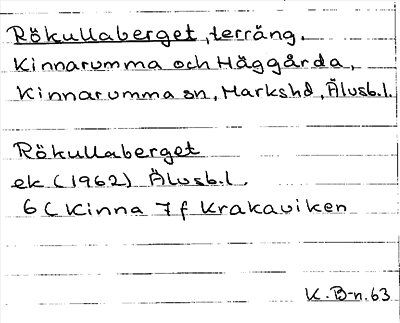 Rökullaberget, terräng.
Kinnarumma och Häggårda,
Kinnarumma sn, Markshd, Älvsb.l.
Rökullaberget
ek (1962) Älvsb.l.
6 C Kinna 7 f Krakaviken
K. B-n. 63